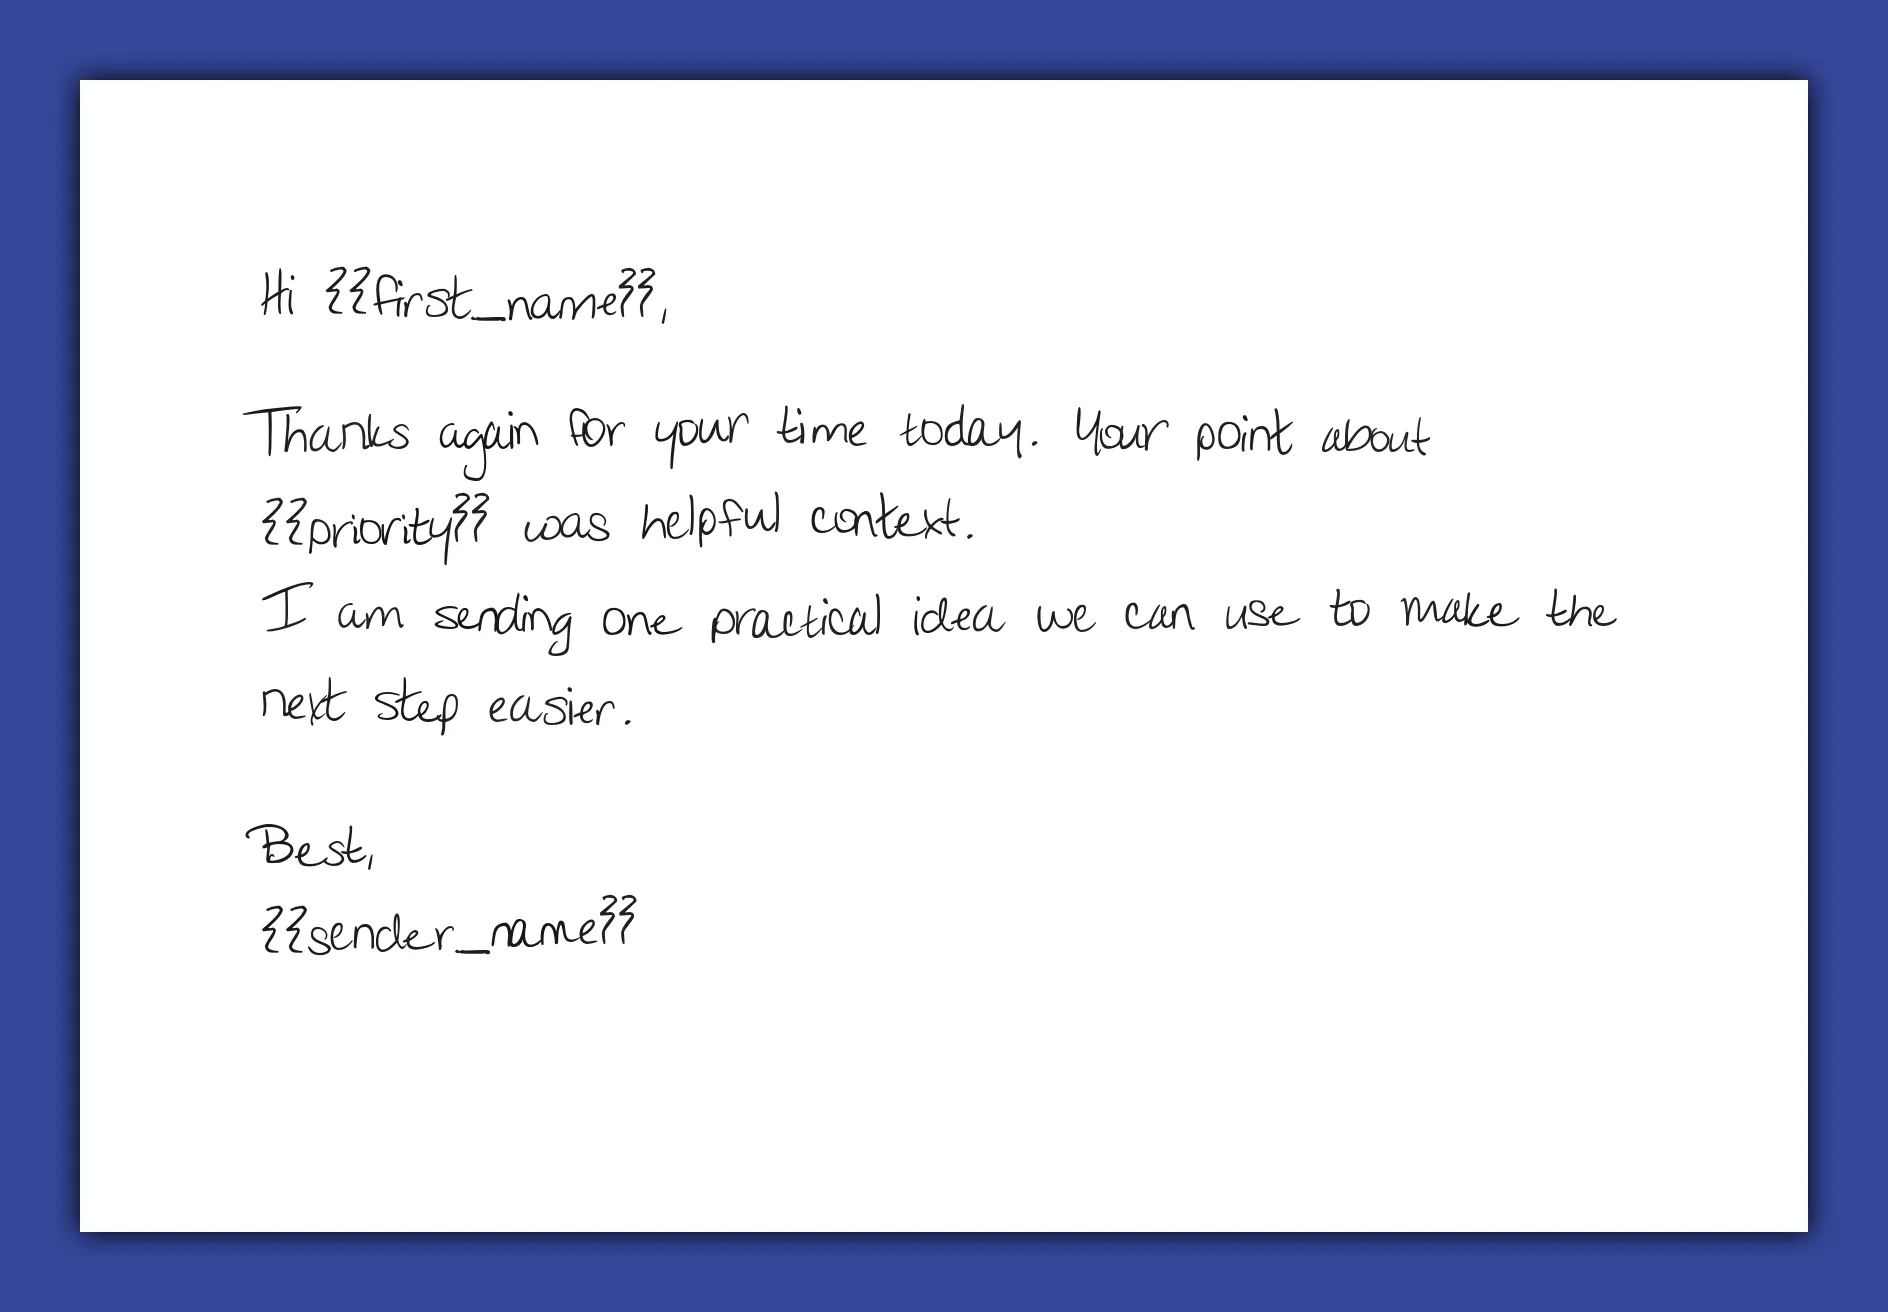 Hi {{first_name}},
Thanks again for your time today. Your point about
{{priority}} was helpful context.
I am sending one practical idea we can use to make the
next step easier.
Best,
{{sender_name}}